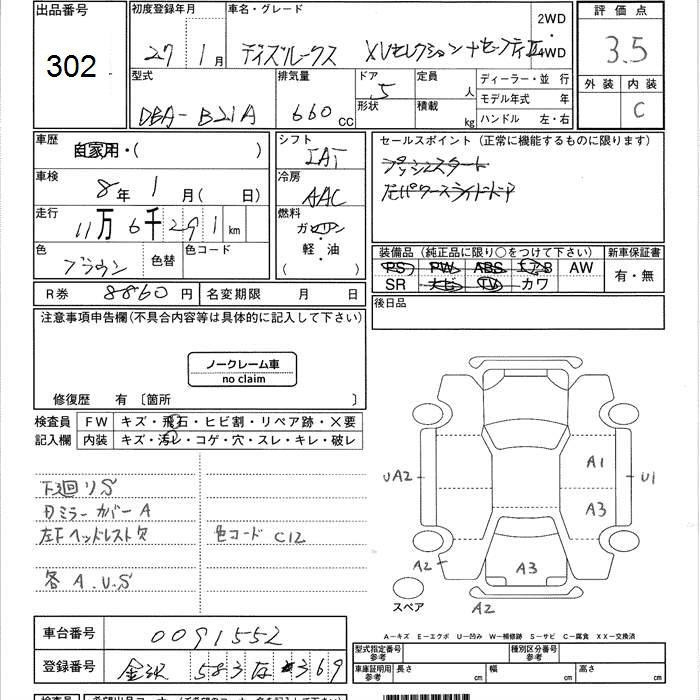 出品番号
302
初度登録年月
27 1月
車名・グレード
デイズルークス XVセレクション+セーフティII
2WD
4WD
評価点
3.5
外装 内装
C
型式
DBA-B21A
排気量
660 CC
ドア 5
形状
定員 人
積載 kg
ディーラー・並行
モデル年式 年
ハンドル 左・右
車歴
自家用・( )
車検
8年 1月( 日)
走行
11万 6千 291 km
色
ブラウン
色替
色コード
シフト
IAT
冷房
AAC
燃料
ガソリン
軽・油
( )
セールスポイント(正常に機能するものに限ります)
プッシュスタート
左パワースライドドア
装備品(純正品に限り○をつけて下さい)
PS PW ABS エアB AW
SR ナビ TV カワ
新車保証書
有・無
R券 8860円
名変期限 月 日
後日品
注意事項申告欄(不具合内容等は具体的に記入して下さい)
ノークレーム車
no claim
修復歴 有 [箇所 ]
検査員
記入欄
FW キズ・飛石・ヒビ割・リペア跡・×要
内装 キズ・汚れ・コゲ・穴・スレ・キレ・破レ
下廻りS
カミラーカバーA
左Fヘッドレスト欠
色コード C12
各A.U.S
UA2
A1
U1
A3
A2
A3
A2
スペア
車台番号
0091552
登録番号
金沢 583 369
A－キズ E－エクボ U－凹み W－補修跡 S－サビ C－腐食 XX－交換済
型式指定番号
参考
種別区分番号
参考
車庫証明用
参考
長さ cm 幅 cm 高さ cm